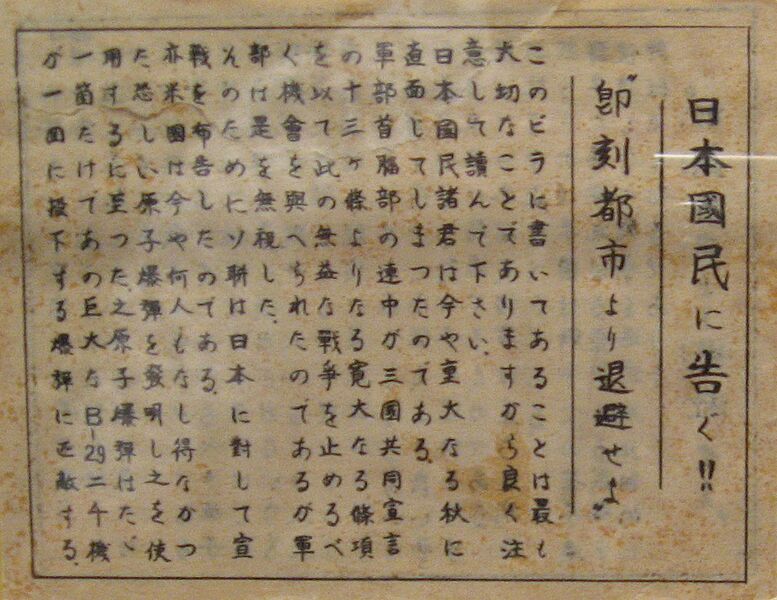 日本國民に告ぐ!!
"即刻都市より退避せよ"
このビラに書いてあることは最も
大切なことでありますから良く注
意して讀んで下さい。
日本國民諸君は今や重大なる秋に
直面してしまつたのである。
軍部首腦部の連中が三國共同宣言
の十三ヶ條よりなる寛大なる條項
を以て此の無益な戰爭を止めるべ
く機會を與へられたのであるが軍
部は是を無視した。
そのためにソ聯は日本に對して宣
戰を布告したのである。
亦米國は今や何人もなし得なかつ
た恐しい原子爆彈を發明し之を使
用するに至つた。之原子爆彈はたゞ
一箇だけであの巨大なB-29二千機
が一回に投下する爆彈に匹敵する。